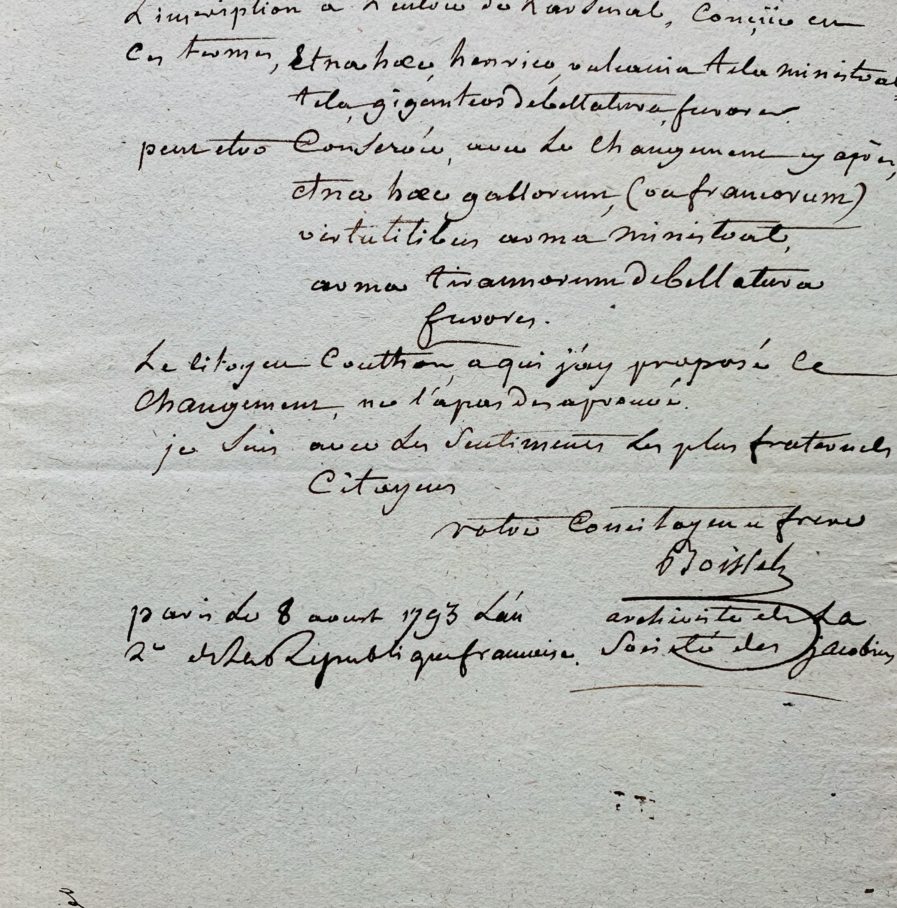 L'inscription a L'entrée de L'arsenal, Conçüe en
Ces termes, Etna hæc, henrico, vulcania tela ministrat,
tela, giganteos debellatura, furores.
peut etre Conservée, avec Le changement cy après,
etna hæc gallorum, (ou francorum)
virtutilibus arma ministrat,
arma tirannorum debellatura
furores.
Le citoyen Couthon, a qui j'ay proposé Ce
Changement, ne l'a pas desaprouvé.
je suis avec des sentiments les plus fraternels
Citoyens
votre Concitoyen et frere
Boissel
paris Le 8 aoust 1793 L'an
archiviste de La
2e de La Republique francoise.
Société des jacobins